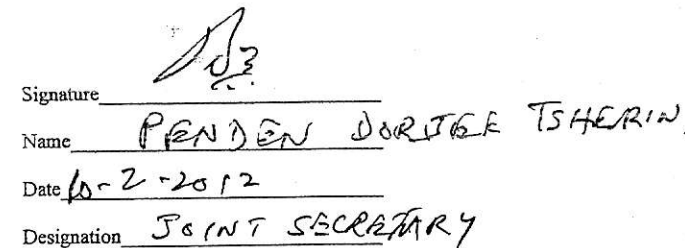 Signature
Name PENDEN DORJEE TSHERIN
Date 10-2-2012
Designation JOINT SECRETARY